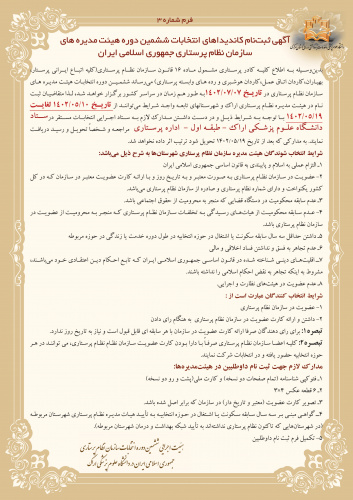 فرم شماره ۳
آگهی ثبت‌نام کاندیداهای انتخابات ششمین دوره هیئت مدیره های
سازمان نظام پرستاری جمهوری اسلامی ایران
بدین‌وسیله به اطلاع کلیه کادر پرستاری مشمول ماده ۱۶ قانون سازمان نظام پرستاری(کلیه اتباع ایرانی پرستار،
بهیاران،کاردان اتاق عمل،کاردان هوشبری و رده‌های وابسته پرستاری)می‌رساند ششمین دوره انتخابات هیئت مدیره های
سازمان نظام پرستاری در تاریخ ۱۴۰۲/۰۷/۰۷ به طور هم زمان در سراسر کشور برگزار خواهد شد، لذا متقاضیان ثبت
نام در هیئت مدیره نظام پرستاری اراک و شهرستانهای تابعه واجد شرایط می‌توانند از تاریخ ۱۴۰۲/۰۵/۱۰ لغایت
۱۴۰۲/۰۵/۱۹ با توجه به شرایط ذیل و در دست داشتن مدارک لازم به ستاد اجرایی انتخابات مستقر در ستاد
دانشگاه علوم پزشکی اراک - طبقه اول - اداره پرستاری مراجعه و شخصاً تحویل و رسید دریافت
نمایند. به مدارکی که بعد از تاریخ ۱۴۰۲/۰۵/۱۹ تحویل شود ترتیب اثر داده نخواهد شد.
شرایط انتخاب شوندگان هیئت مدیره سازمان نظام پرستاری شهرستان‌ها به شرح ذیل می‌باشد:
۱-التزام عملی به اسلام و پایبندی به قانون اساسی جمهوری اسلامی ایران
۲-عضویت در سازمان نظام پرستاری به صورت معتبر و به تاریخ روز و با ارائه کارت عضویت معتبر سازمان که در کل
کشور یکنواخت و دارای شماره نظام پرستاری و صادره از سازمان نظام پرستاری می‌باشد.
۳-عدم سابقه محکومیت در دستگاه قضایی که منجر به محرومیت از حقوق اجتماعی باشد.
۴-عدم سابقه محکومیت از هیات‌های رسیدگی به تخلفات سازمان نظام پرستاری که منجر به محرومیت از عضویت در
سازمان نظام پرستاری باشد.
۵-داشتن حداقل سه سال سابقه سکونت یا اشتغال در حوزه انتخابیه در طول دوره خدمت یا زندگی در حوزه مربوطه
۶-عدم تجاهر به فسق و نداشتن فساد اخلاقی و مالی
۷-اقلیت‌های دینی شناخته شده در قانون اساسی جمهوری اسلامی ایران که تابع احکام دین اعتقادی خود می‌باشند،
مشروط به اینکه تجاهر به نقض احکام اسلامی را نداشته باشند.
۸-عدم عضویت در هیئت‌های نظارت و اجرایی.
شرایط انتخاب کنندگان عبارت است از :
۱-عضویت در سازمان نظام پرستاری
۲-داشتن و ارائه کارت عضویت در سازمان نظام پرستاری به هنگام رای دادن
تبصره۱: برای رای دهندگان صرفا ارائه کارت عضویت در سازمان با هر سابقه ای قابل قبول است و نیاز به تاریخ روز ندارد.
تبصره۲: کلیه اعضا سازمان نظام پرستاری صرفاً با دارا بودن کارت عضویت سازمان نظام پرستاری، می توانند در هر
حوزه انتخابیه حضور یافته و در انتخابات شرکت نمایند.
مدارک لازم جهت ثبت نام داوطلبین در هیئت‌مدیره‌ها:
۱-فتوکپی شناسنامه (تمام صفحات دو نسخه) و کارت ملی(پشت و رو دو نسخه)
۲-۶ قطعه عکس ۳*۴
۳-تصویر کارت عضویت (معتبر و تاریخ دار) در سازمان که برابر اصل شده باشد.
۴-گواهی مبنی بر سه سال سابقه سکونت یا اشتغال در حوزه انتخابیه به تأیید هیات مدیره نظام پرستاری شهرستان مربوطه
(در شهرستان‌هایی که تاکنون نظام پرستاری نداشته‌اند به تأیید شبکه بهداشت و درمان شهرستان مربوطه).
۵-تکمیل فرم ثبت نام داوطلبین
هیئت اجرایی ششمین دوره انتخابات سازمان نظام پرستاری
جمهوری اسلامی ایران در دانشگاه علوم پزشکی اراک